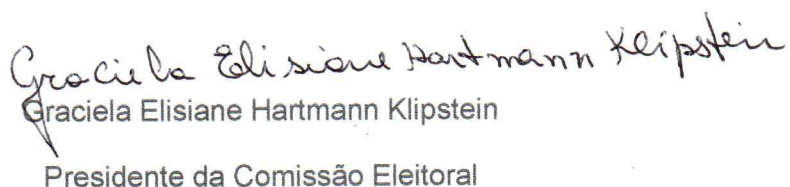 Graciela Elisiane Hartmann Klipstein
Graciela Elisiane Hartmann Klipstein
Presidente da Comissão Eleitoral